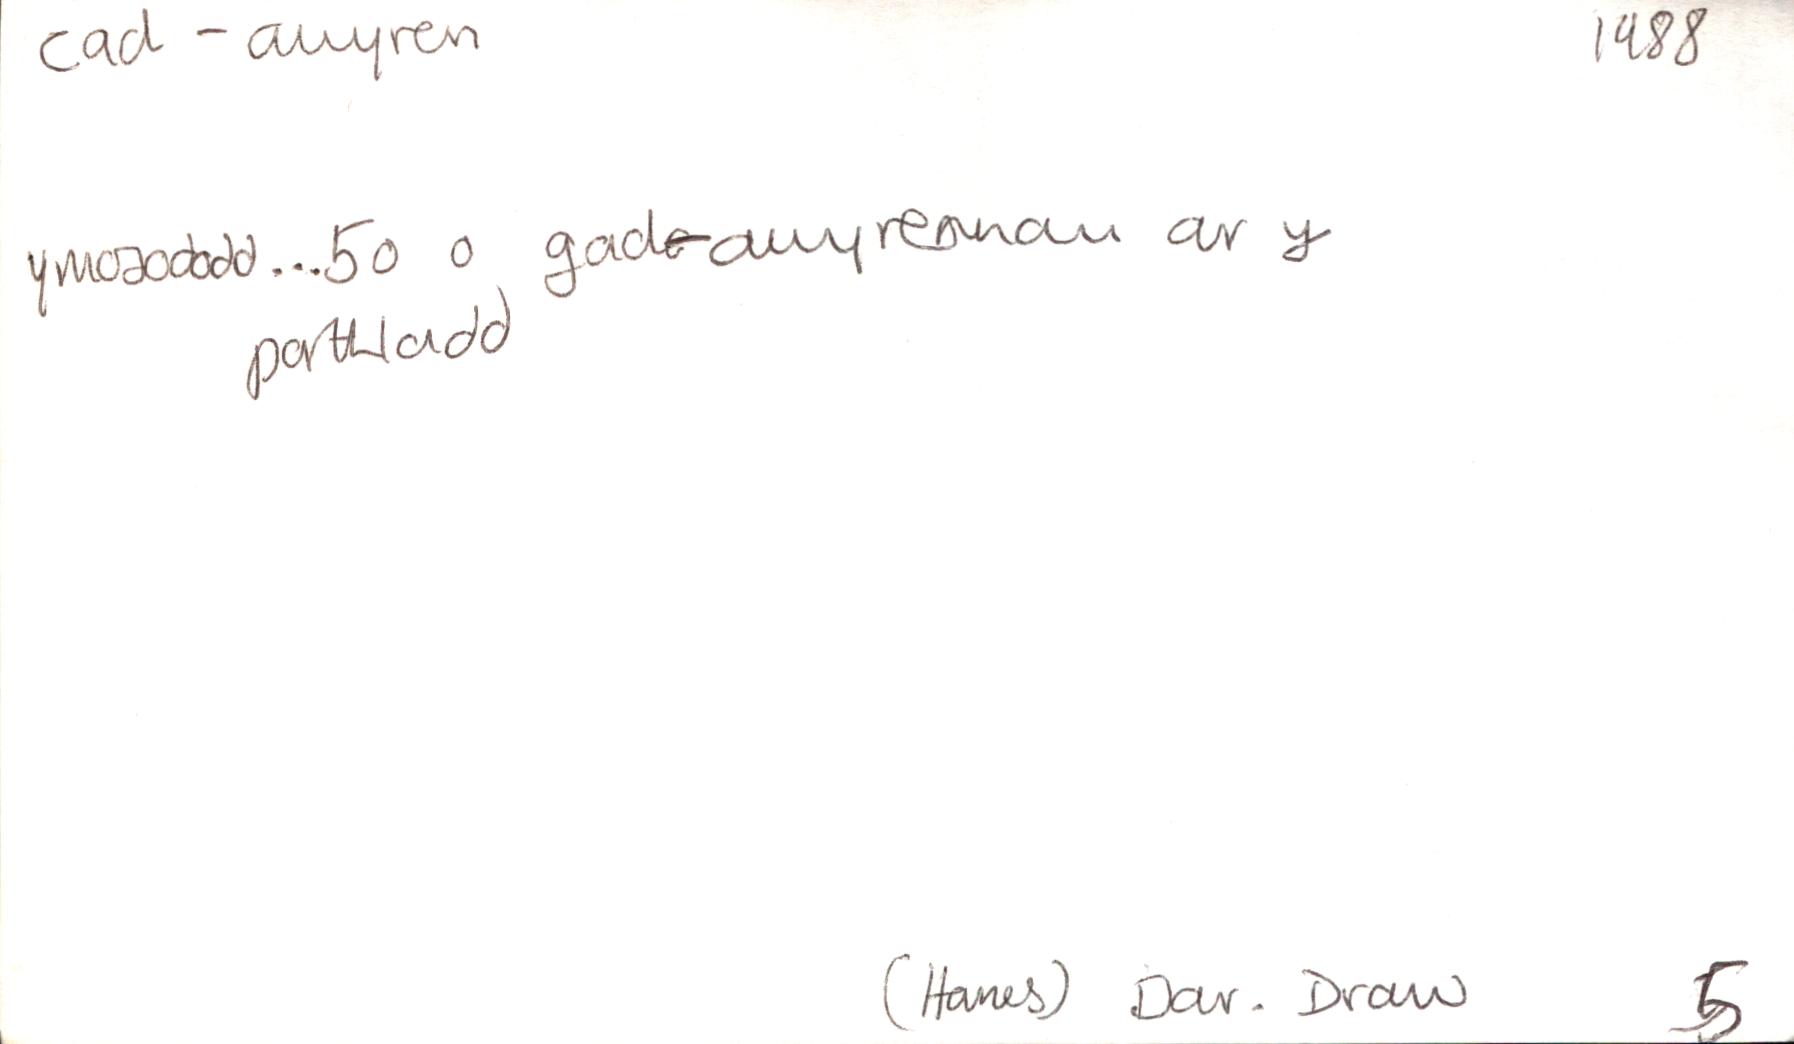 cad - awyren 1988
ymosododd...50 o gad-awyrennau ar y
porthladd
(Hanes) Dar. Draw 5